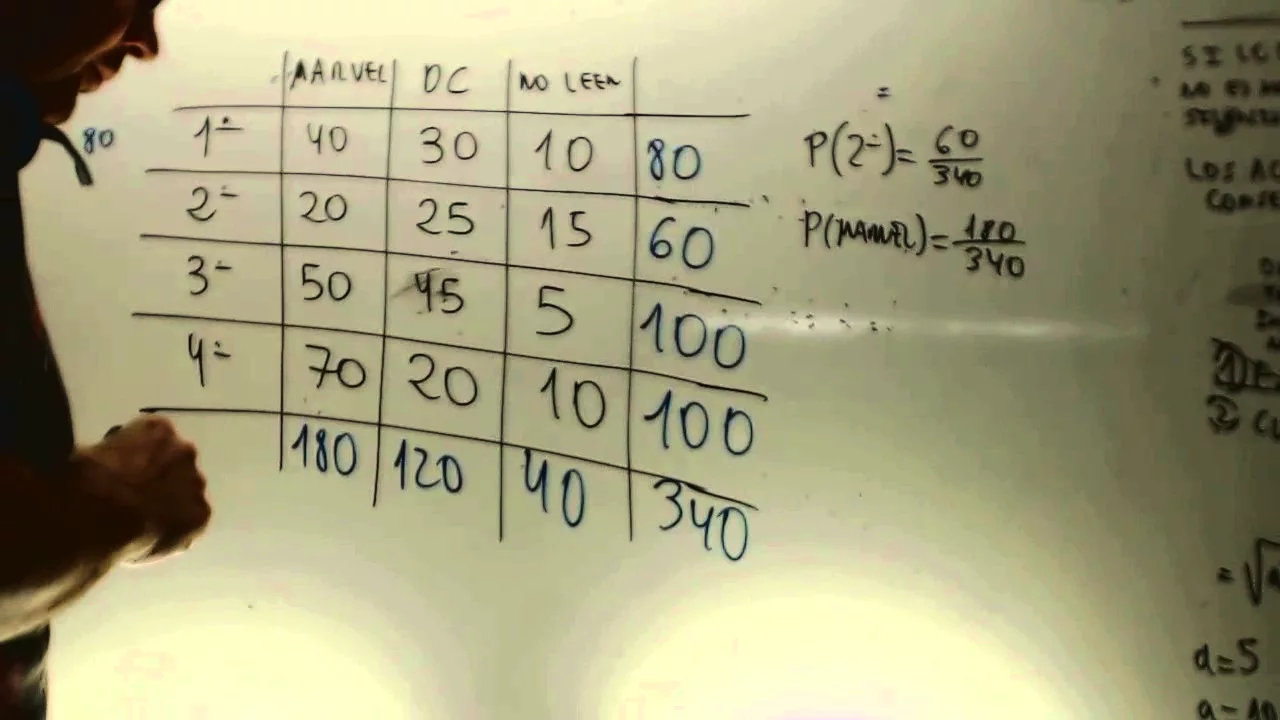 MARVEL DC NO LEEN
80 1º 40 30 10 80
2º 20 25 15 60
3º 50 45 5 100
4º 70 20 10 100
180 120 40 340
=
P(2º)= 60/340
P(MARVEL)= 180/340
NO ES
LOS
1
2
= √
a=5